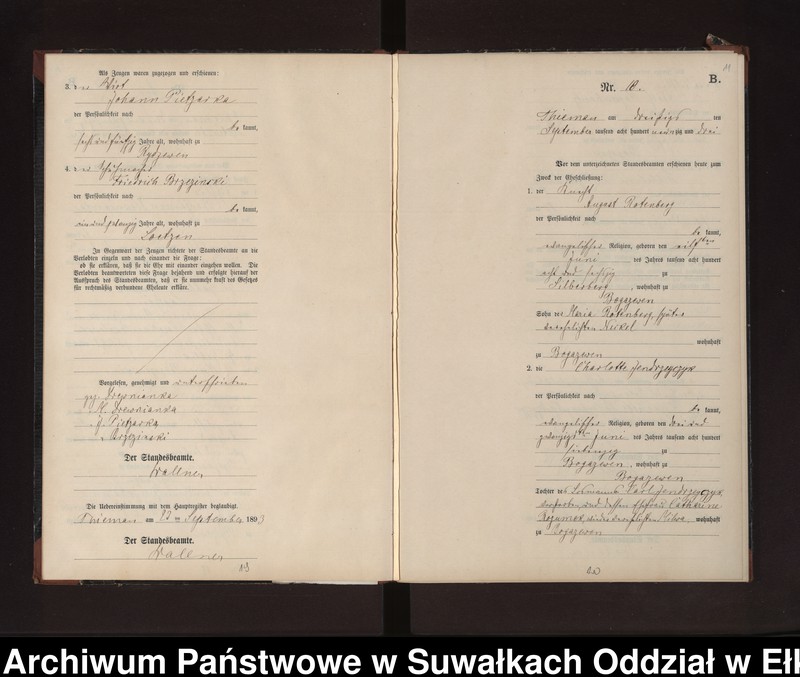 Als Zeugen waren zugezogen und erschienen:
3. der Wirt
Johann Pietzarka
der Persönlichkeit nach
be kannt,
sechs und fünfzig Jahre alt, wohnhaft zu
Rydzewen
4. der Schuhmacher
Friedrich Brzezinski
der Persönlichkeit nach
be kannt,
ein und zwanzig Jahre alt, wohnhaft zu
Loetzen
In Gegenwart der Zeugen richtete der Standesbeamte an die
Verlobten einzeln und nach einander die Frage:
ob sie erklären, daß sie die Ehe mit einander eingehen wollen. Die
Verlobten beantworteten diese Frage bejahend und erfolgte hierauf der
Ausspruch des Standesbeamten, daß er sie nunmehr kraft des Gesetzes
für rechtmäßig verbundene Eheleute erkläre.
Vorgelesen, genehmigt und unterschrieben
gez. Drewnianka
M. Drewnianka
J. Pietzarka
Brzezinski
Der Standesbeamte.
Wallner
Die Uebereinstimmung mit dem Hauptregister beglaubigt.
Thiemau am September 1893
Der Standesbeamte.
Wallner
B.
Nr. 10.
Thiemau am dreißigs ten
September tausend acht hundert neunzig und drei
Vor dem unterzeichneten Standesbeamten erschienen heute zum
Zweck der Eheschließung:
1. der Knecht
August Rotenberg
der Persönlichkeit nach
be kannt,
evangelischer Religion, geboren den elften
Juni des Jahres tausend acht hundert
acht und sechzig zu
Silberberg, wohnhaft zu
Bogazewen
Sohn der Maria Rotenberg, später
verehelichten Nickel
wohnhaft
zu Bogazewen
2. die Charlotte Jendrzeyczyk
der Persönlichkeit nach
be kannt,
evangelischer Religion, geboren den drei und
zwanzigsten Juni des Jahres tausend acht hundert
siebenzig zu
Bogazewen, wohnhaft zu
Bogazewen
Tochter des Losmanns Karl Jendrzeyczyk
verstorben und dessen Ehefrau Catharine
wohnhaft
zu Bogazewen
Archiwum Państwowe w Suwałkach Oddział w Ełk